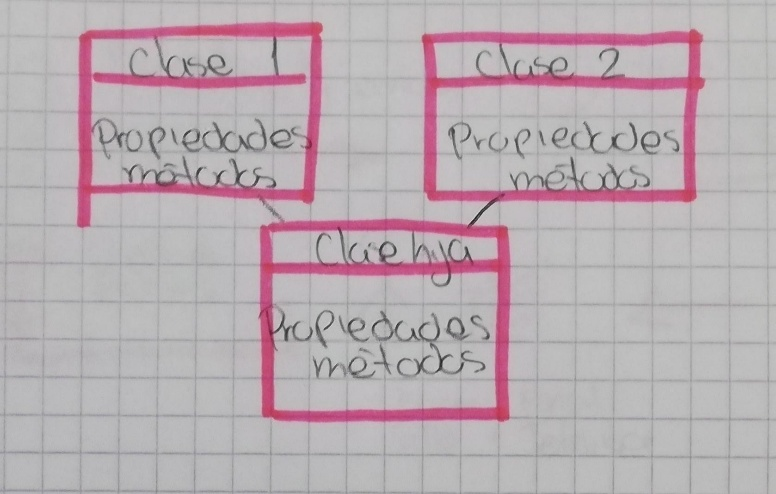 Clase 1
Propiedades
métodos
Clase 2
Propiedades
métodos
Clase hija
Propiedades
métodos